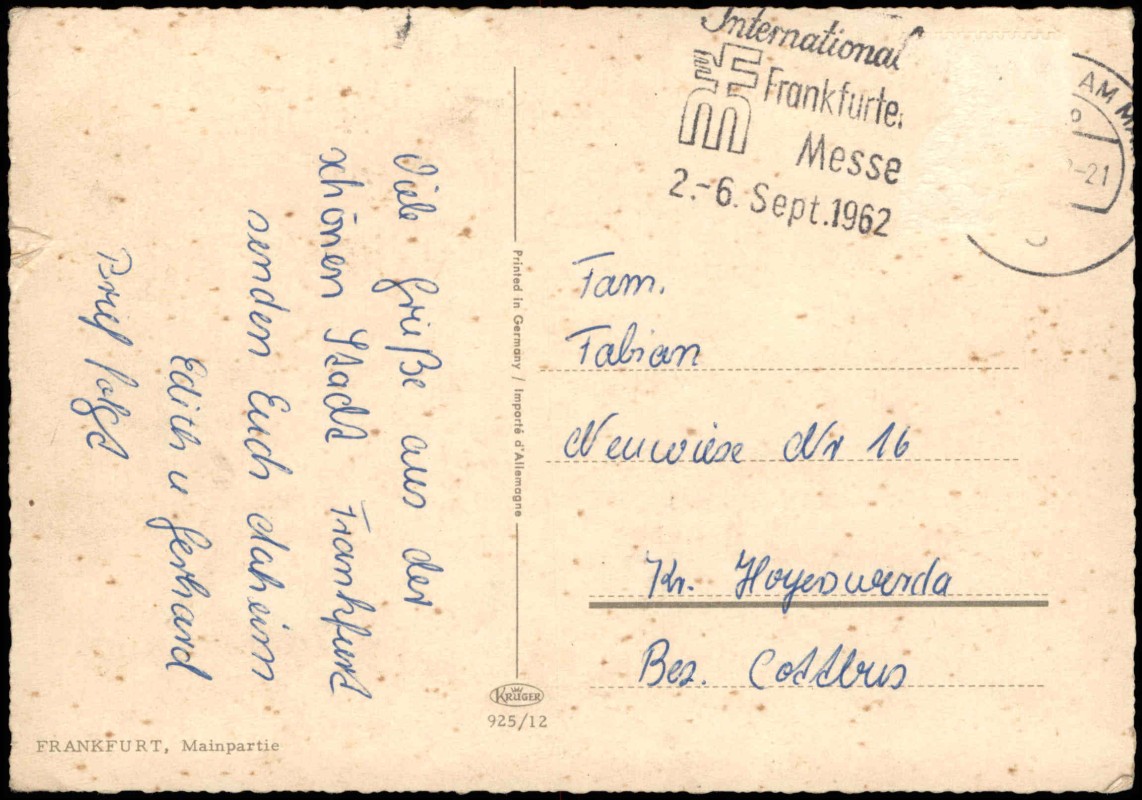 Viele Grüße aus der
schönen Stadt Frankfurt
senden Euch daheim
Edith u Gerhard
Brief folgt
Printed in Germany / Importé d'Allemagne
KRÜGER
925/12
FRANKFURT, Mainpartie
International
Frankfurter
Messe
2.-6. Sept. 1962
AM MA
-21
Fam.
Fabian
Neuwiese Nr 16
Kr. Hoyerswerda
Bez. Cottbus